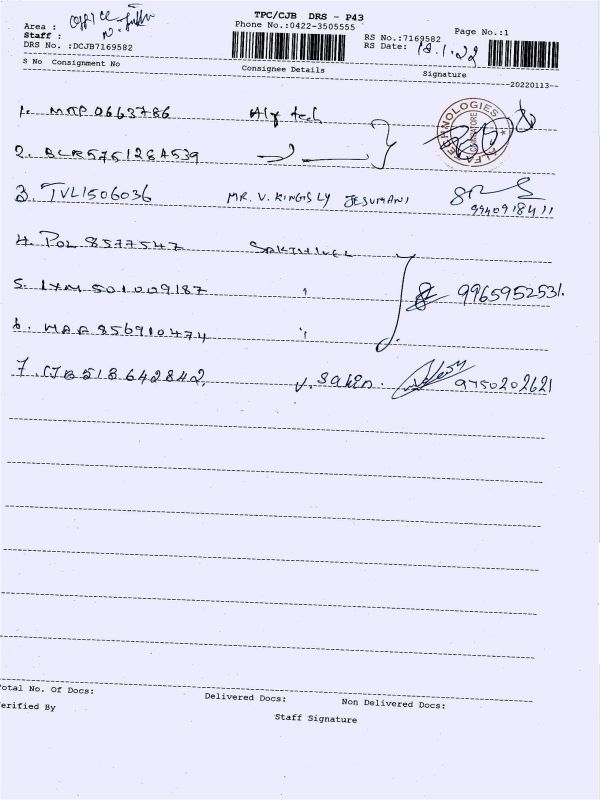 TPC/CJB DRS - P43
Area : Office
Phone No.:0422-3505555
Page No.:1
Staff :
RS No.:7169582
DRS No. :DCJB7169582
RS Date: 18.1.22
S No Consignment No Consignee Details Signature
--20220113--
1. 0663786 tech
TECHNOLOGIES
COIMBATORE
2. BLR5751284539
3. TVL1506036 MR. V. KINGISLY JESUMANI
9940918411
4. POL 8577547 SAKTHIVEL
5. IXM 501009187 " 9965952531.
6. MAA 856910474 "
7. CJB518642842 V. 9750202621
Total No. Of Docs: Delivered Docs: Non Delivered Docs:
Verified By
Staff Signature